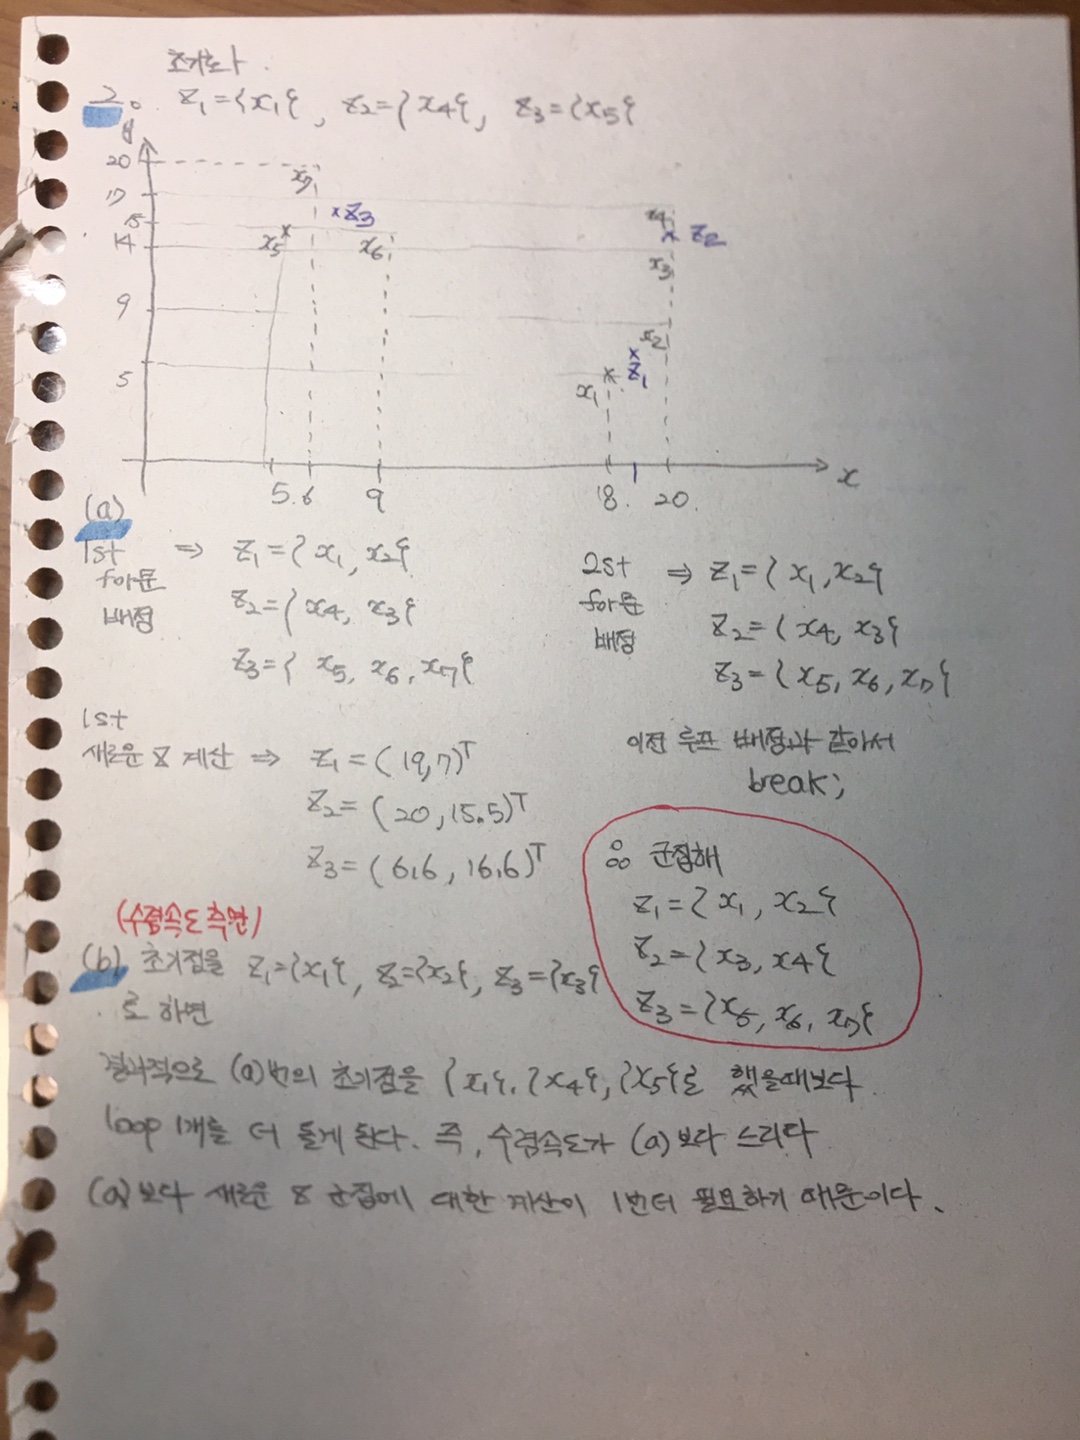 초기노나.
2. Z₁={x₁}, Z₂={x₄}, Z₃={x₅}
y
20
x₇
17
x₄
15
x Z₃
x Z₂
14
x₅
x₆
x₃
9
x₂
x Z₁
5
x₁
5. 6 9 18. 20. x
(a)
1st ⇒ Z₁={x₁, x₂}
for문 Z₂={x₄, x₃}
배정 Z₃={x₅, x₆, x₇}
2st ⇒ Z₁={x₁, x₂}
for문 Z₂={x₄, x₃}
배정 Z₃={x₅, x₆, x₇}
1st
새로운 Z 계산 ⇒ Z₁=(19,7)ᵀ
Z₂=(20, 15.5)ᵀ
Z₃=(6.6, 16.6)ᵀ
이전 루프 배정과 같아서
break;
∴ 군집해
Z₁={x₁, x₂}
Z₂={x₃, x₄}
Z₃={x₅, x₆, x₇}
(수렴속도 측면)
(b) 초기점을 Z₁={x₁}, Z₂={x₂}, Z₃={x₃}
로 하면
결과적으로 (a)번의 초기점을 {x₁}, {x₄}, {x₅}로 했을때보다
loop 1개를 더 돌게 된다. 즉, 수렴속도가 (a)보다 느리다
(a)보다 새로운 Z 군집에 대한 계산이 1번더 필요하기 때문이다.